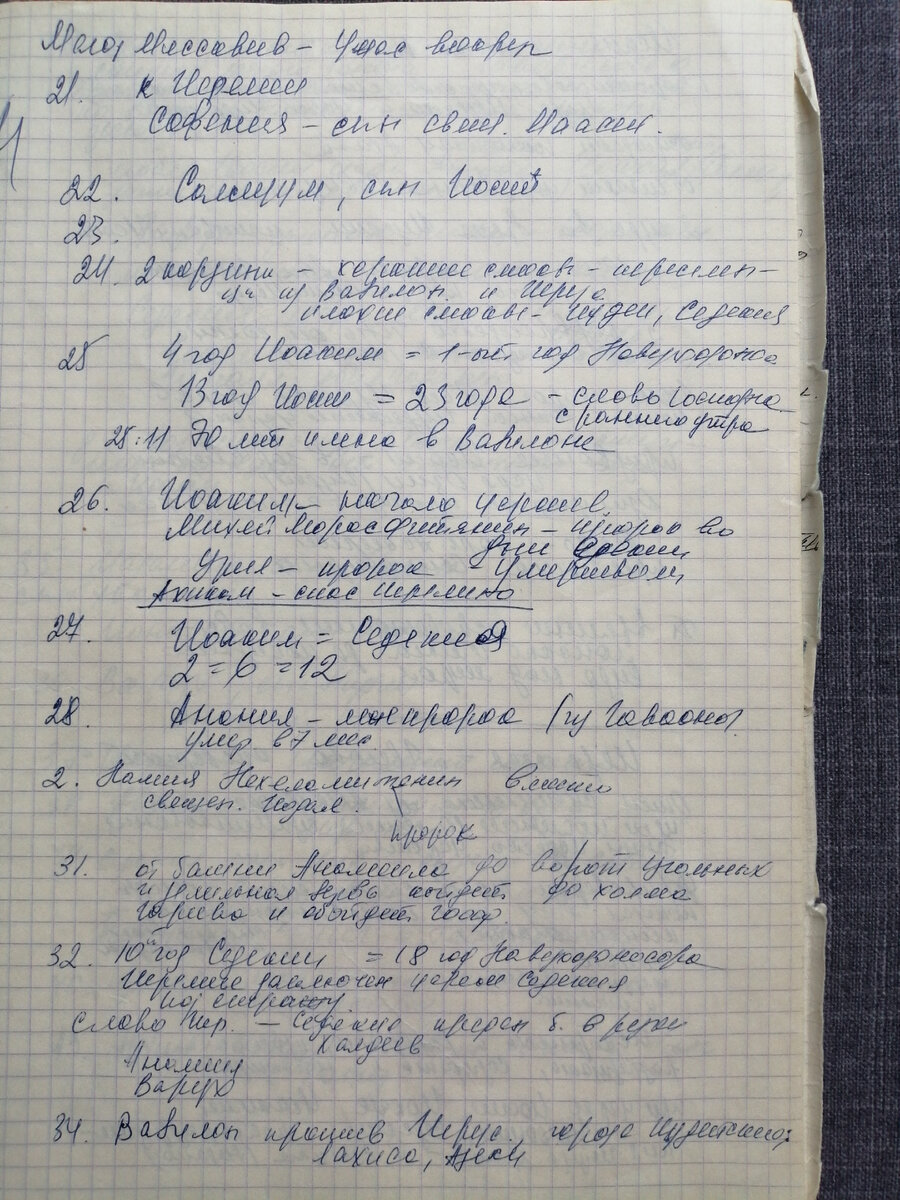 Магор Миссавив - Ужас вокруг
21. к Иеремии
Софония - син свящ. Маасеи.
22. Саллум, син Иосии
23.
24. 2 корзини - хорошие смоквы - переселен-
ци из Вавилон. и Иерус
плохие смоквы - иудеи, Седекия
25 4 год Иоаким = 1-ый год Навуходонос
13 год Иосии = 23 года - слово Господна
с раннего утра
25:11 70 лет плена в Вавилоне
26. Иоаким - начало царств.
Михей Морасфитянин - пророк во
дни
Урия - пророк умерщвлен
Ахикам - спас Иеремию
27. Иоаким = Седекия
2 = 6 = 12
28. Анания - лжепророк (из Гаваона)
умер. в 7 мес
2. Шамия Нехеламитянин вместо
священ. Иодая.
пророк
31. от башни Анамеила до ворот угольных
и землемерная вервь пойдет до холма
Гарива и обойдет Гоаф.
32. 10й год Седекии = 18 год Навуходоносора
Иеремия заключен царем Седекия
под стражу
Слово Иер. - Седекия предан б. в руки
Халдеев
Анамеил
Варух
34. Вавилон против Иерус., города Иудейские:
Лахиса, Азеки